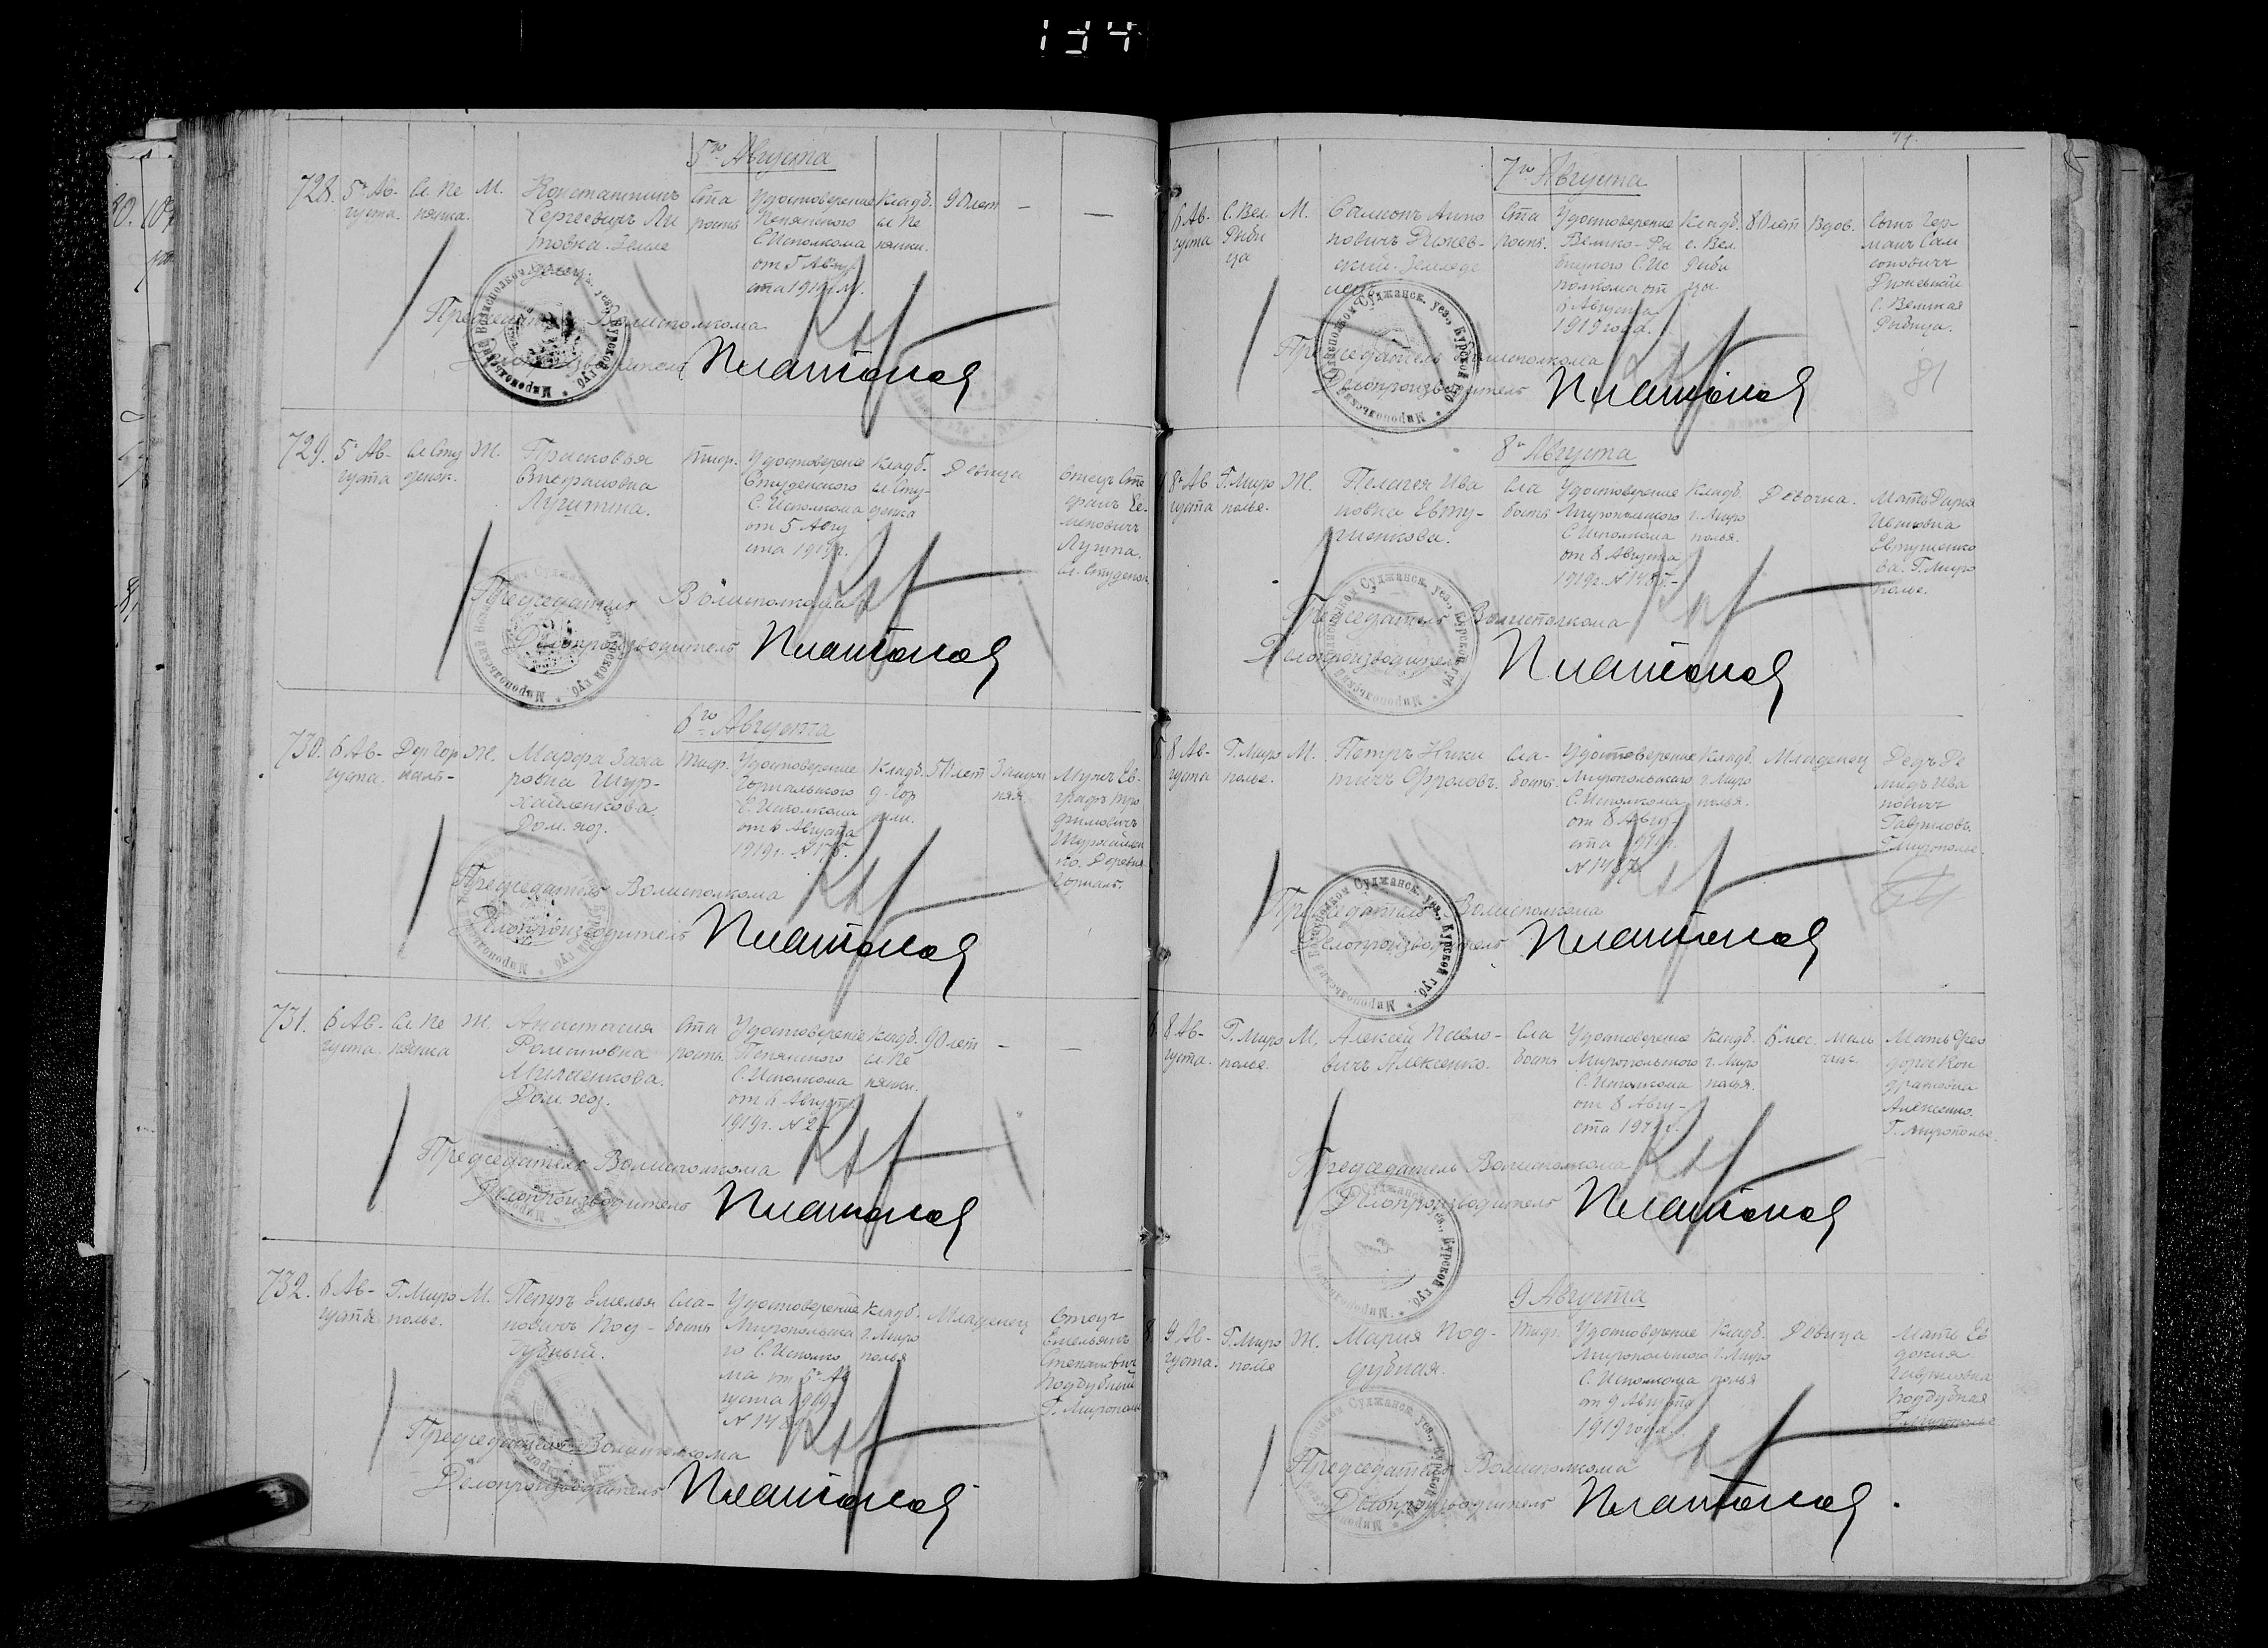 134
5го Августа
728. 5го Ав-
густа.
Сл. Пе
нянка.
М.
Константинъ
Сергеевичъ Ли
товка. Земле
делец.
Ста
рость
Удостоверение
Пенянского
С. Исполкома
от 5 Авгу
ста 1919 г. №
Кладб.
сл. Пе
нянки.
90 лет
—
—
Председатель Волисполкома
Делопроизводитель Платонов
Миропольский Волисполком Суджанск. уез., Курской губ.
729. 5го Ав-
густа
Сл. Сту
денок.
Ж.
Прасковья
Стефановна
Лушпина.
Тиф.
Удостоверение
Студенского
С. Исполкома
от 5 Авгу
ста 1919 г.
Кладб.
сл. Сту-
денка
Девица
Отец Сте
фанъ Се-
менович
сл. Студенок.
Председатель Волисполкома
Делопроизводитель Платонов
6го Августа
730. 6 Ав-
густа.
Дер. Гор
наль-
Ж.
Марфа Заха
ровна Шур-
хайленкова.
Дом. хоз.
Тиф.
Удостоверение
Горнальского
С. Исполкома
от 6 Августа
1919 г. № 175.
Кладб.
д. Гор
нали.
50 лет
Замуж
няя.
Мужъ Ев-
графъ Тро
фимовичъ
Шурхайлен
ко. Деревня
Горналь.
Председатель Волисполкома
Делопроизводитель Платонов
731. 6 Ав-
густа.
Сл. Пе
нянка
Ж.
Анастасия
Романовна
Дом. хоз.
Ста
рость.
Удостоверение
Пенянского
С. Исполкома
от 6 Августа
1919 г. № 2-
Кладб.
сл. Пе
нянки.
90 лет
—
—
Председатель Волисполкома
Делопроизводитель Платонов
732. 6 Ав-
густа
Г. Миро
полье.
М.
Петръ Емелья
новичъ Под-
дубный.
Сла-
бость
Удостоверение
Миропольска
го С. Исполко
ма от 6го Ав
густа 1919 г.
Кладб.
г. Миро
полья
Младенец
Отецъ
Емельянъ
Степанович
Поддубный
Г. Мирополье
Председатель Волисполкома
Делопроизводитель Платонов
7го Августа
6 Ав.
густа
С. Вел.
Рыби
ца
М.
Самсонъ Анто
новичъ Рижев-
ский. Земледе
лец.
Ста
рость.
Удостоверение
Велико-Ры
бицкого С. Ис
полкома от
6 Августа
1919 года.
Кладб.
с. Вел.
Рыби
цы.
80 лет
Вдов.
Сынъ Гер-
манъ Сам
соновичъ
Рижевский
С. Великая
Рыбица.
81
Председатель Волисполкома
Делопроизводитель Платонов
8го Августа
8го Ав
густа
Г. Миро
полье.
Ж.
Пелагея Ива
новна Евту-
шенкова.
Сла
бость
Удостоверение
Миропольского
С. Исполкома
от 8 Августа
Кладб.
г. Миро
полья.
Девочка.
Мать Дарья
Евтушенко
ва. Г. Миро
полье.
Председатель Волисполкома
Делопроизводитель Платонов
8 Ав-
густа
Г. Миро
полье.
М.
Петръ Ники
тичъ Фроловъ.
Сла-
бость.
Удостоверение
Миропольского
С. Исполкома
от 8 Авгу-
ста 1919 г.
№ 1487.
Кладб.
г. Миро
полья.
Младенец
Дедъ Де
мидъ Ива
новичъ
Гавриловъ.
Г. Мирополье.
Председатель Волисполкома
Делопроизводитель Платонов
8 Ав-
густа.
Г. Миро
полье.
М.
Алексей Павло-
вичъ Алексенко.
Сла
бость
Удостоверение
Миропольского
С. Исполкома
от 8 Авгу-
ста 1919 г.
Кладб.
г. Миро
полья.
6 мес.
маль
чик.
Мать Фео
дора Кон
дратовна
Алексенко.
Г. Мирополье.
Председатель Волисполкома
Делопроизводитель Платонов
9 Августа
9 Ав-
густа.
Г. Миро
полье
Ж.
Мария Под-
дубная.
Тиф.
Удостоверение
Миропольского
С. Исполкома
от 9 Августа
1919 года.
Кладб.
г. Миро
полья
Девица
Мать Ев
докия
Поддубная
Г. Мирополье
Председатель Волисполкома
Делопроизводитель Платонов